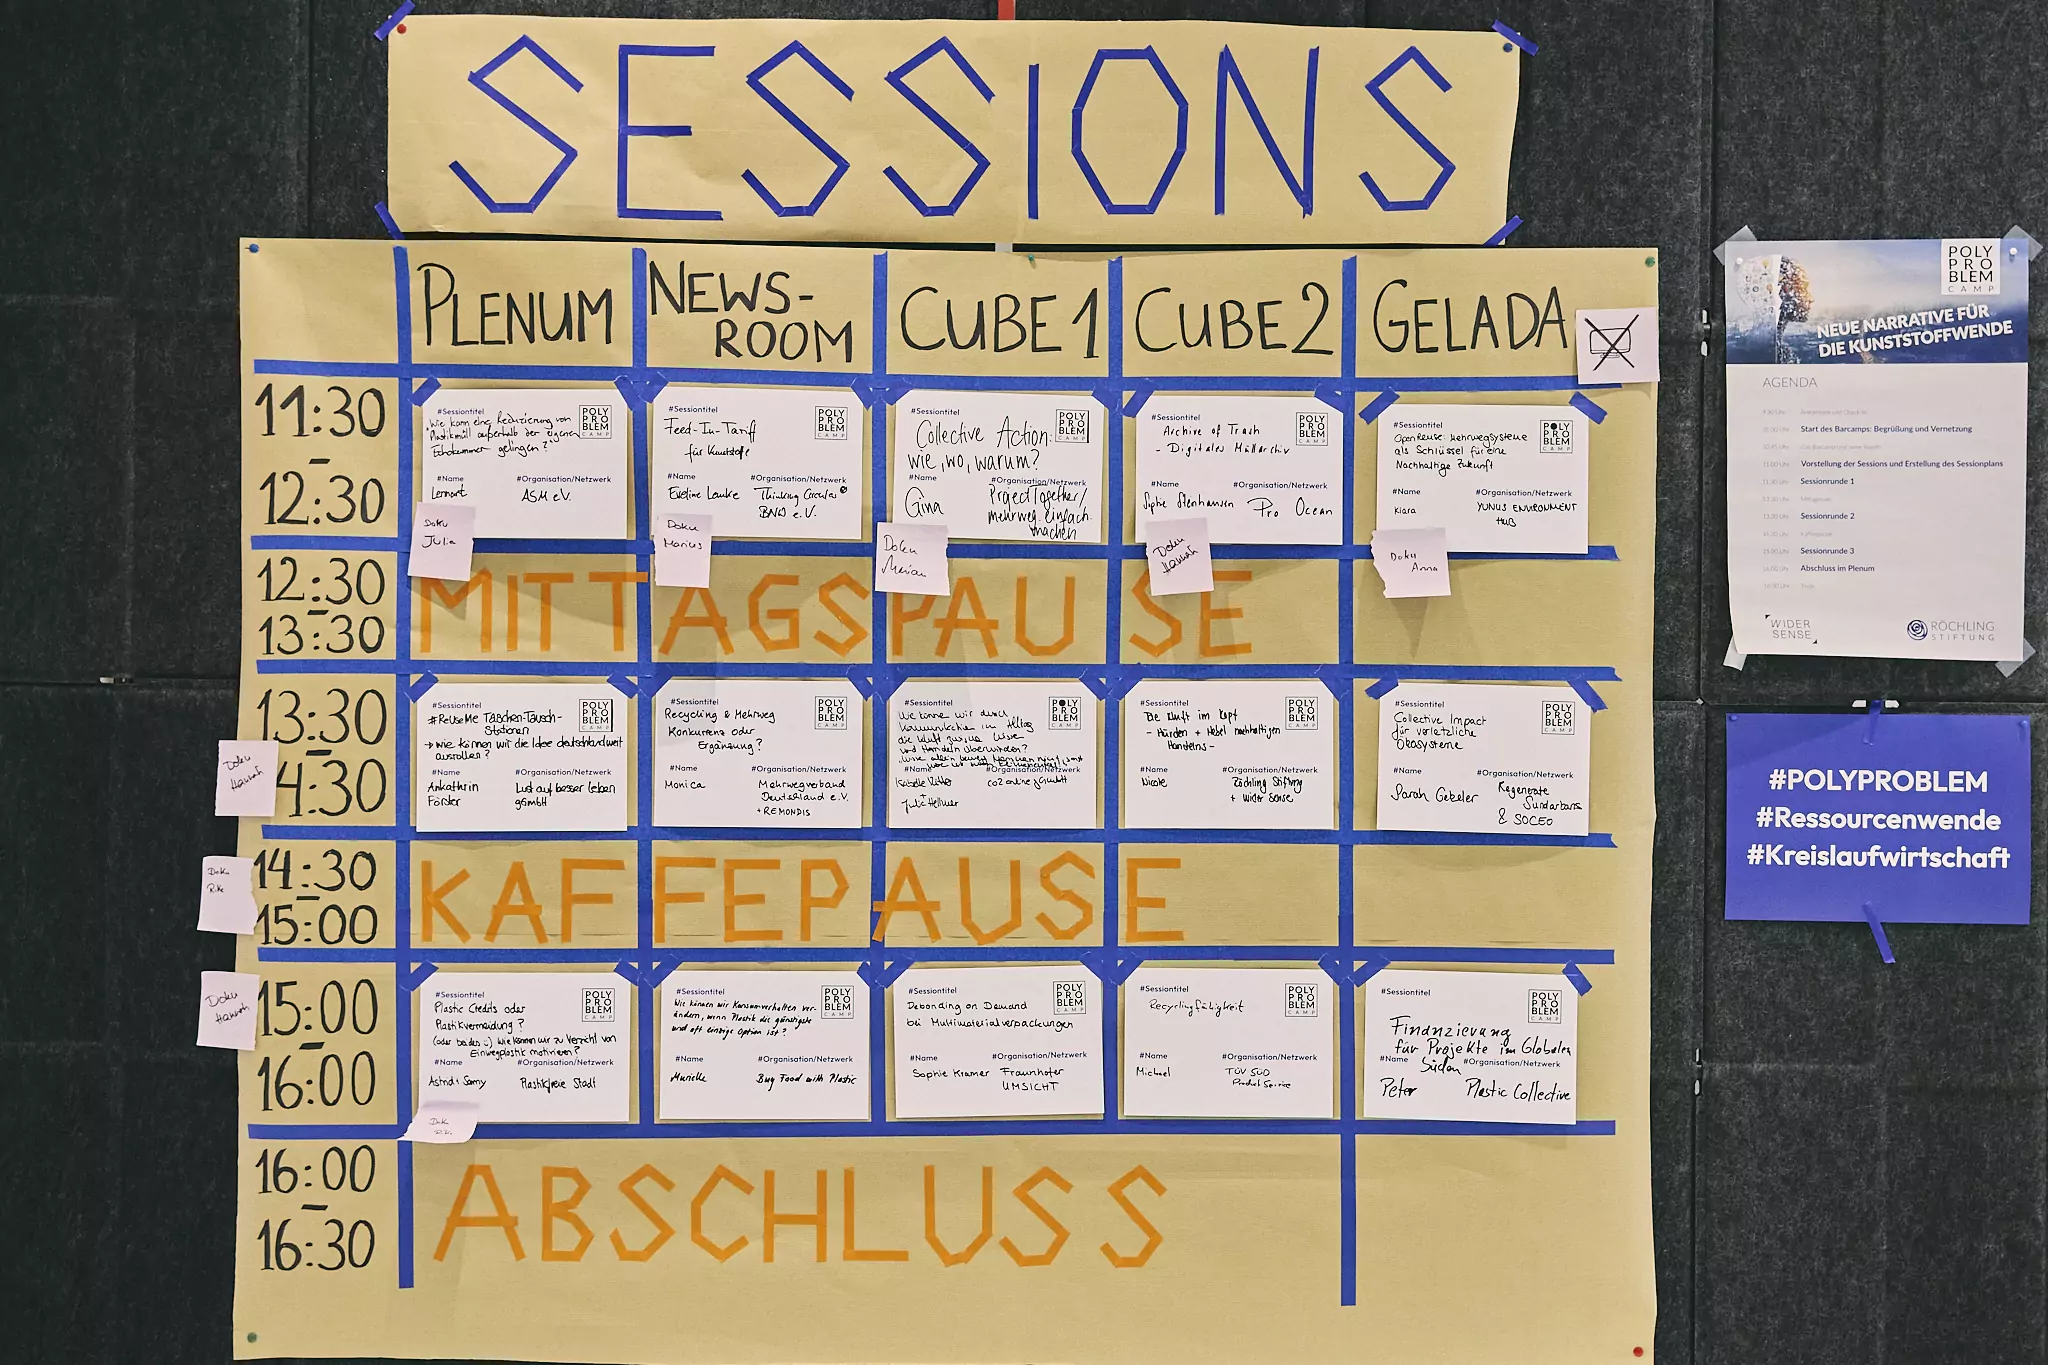 SESSIONS
PLENUM
NEWS-
ROOM
CUBE 1
CUBE 2
GELADA
11:30
-
12:30
#Sessiontitel
"Wie kann eine Reduzierung von
Plastikmüll außerhalb der eigenen
Echokammer gelingen?"
#Name
#Organisation/Netzwerk
Lennart
ASM e.V.
POLY
PRO
BLEM
CAMP
Doku
Julia
#Sessiontitel
Feed-In-Tariff
für Kunststoffe
#Name
#Organisation/Netzwerk
Eveline Lemke
Thinking Circular
BNW e.V.
POLY
PRO
BLEM
CAMP
Doku
Marius
#Sessiontitel
Collective Action:
wie, wo, warum?
#Name
#Organisation/Netzwerk
Gina
ProjectTogether/
mehrweg.einfach.
machen
POLY
PRO
BLEM
CAMP
Doku
#Sessiontitel
Archive of Trash
- Digitales Müllarchiv
#Name
#Organisation/Netzwerk
Sophie
Pro Ocean
POLY
PRO
BLEM
CAMP
Doku
Hannah
#Sessiontitel
Open Reuse: Mehrwegsysteme
als Schlüssel für eine
Nachhaltige Zukunft
#Name
#Organisation/Netzwerk
Kiara
YUNUS ENVIRONMENT
HUB
POLY
PRO
BLEM
CAMP
Doku
Anna
12:30
-
13:30
MITTAGSPAUSE
13:30
-
14:30
Doku
Hannah
#Sessiontitel
#ReUseMe Taschen-Tausch-
Stationen
→ wie können wir die Idee deutschlandweit
ausrollen?
#Name
#Organisation/Netzwerk
Ankathrin
Förder
Lust auf besser leben
gGmbH
POLY
PRO
BLEM
CAMP
#Sessiontitel
Recycling & Mehrweg
Konkurrenz oder
Ergänzung?
#Name
#Organisation/Netzwerk
Monica
Mehrwegverband
Deutschland e.V.
+ REMONDIS
POLY
PRO
BLEM
CAMP
#Sessiontitel
Wie können wir durch
Kommunikation im Alltag
die Kluft zwischen Wissen
und Handeln überwinden?
#Name
#Organisation/Netzwerk
co2online gGmbH
POLY
PRO
BLEM
CAMP
#Sessiontitel
Die Kluft im Kopf
- Hürden + Hebel nachhaltigen
Handelns -
#Name
#Organisation/Netzwerk
Nicole
Röchling Stiftung
+ Wider Sense
POLY
PRO
BLEM
CAMP
#Sessiontitel
Collective Impact
für verletzliche
Ökosysteme
#Name
#Organisation/Netzwerk
Sarah
Regenerate
Sundarbans
& SOCEO
POLY
PRO
BLEM
CAMP
14:30
-
15:00
Doku
Rike
KAFFEPAUSE
15:00
-
16:00
Doku
Hannah
#Sessiontitel
Plastic Credits oder
Plastikvermeidung?
(oder beides :) Wie können wir zu Verzicht von
Einwegplastik motivieren?
#Name
#Organisation/Netzwerk
Astrid & Samy
Plastikfreie Stadt
POLY
PRO
BLEM
CAMP
Doku
#Sessiontitel
Wie können wir Konsumverhalten ver-
ändern, wenn Plastik die günstigste
und oft einzige Option ist?
#Name
#Organisation/Netzwerk
Murielle
Buy Food with Plastic
POLY
PRO
BLEM
CAMP
#Sessiontitel
Debonding on Demand
bei Multimaterialverpackungen
#Name
#Organisation/Netzwerk
Sophie Kramer
Fraunhofer
UMSICHT
POLY
PRO
BLEM
CAMP
#Sessiontitel
Recyclingfähigkeit
#Name
#Organisation/Netzwerk
Michael
TÜV SÜD
Product Service
POLY
PRO
BLEM
CAMP
#Sessiontitel
Finanzierung
für Projekte im Globalen
Süden
#Name
#Organisation/Netzwerk
Peter
Plastic Collective
POLY
PRO
BLEM
CAMP
16:00
-
16:30
ABSCHLUSS
POLY
PRO
BLEM
CAMP
NEUE NARRATIVE FÜR
DIE KUNSTSTOFFWENDE
AGENDA
Start des Barcamps: Begrüßung und Vernetzung
11:00 Uhr Vorstellung der Sessions und Erstellung des Sessionplans
11:30 Uhr Sessionrunde 1
12:30 Uhr Mittagspause
13:30 Uhr Sessionrunde 2
14:30 Uhr Kaffeepause
15:00 Uhr Sessionrunde 3
16:00 Uhr Abschluss im Plenum
16:30 Uhr Ende
WIDER
SENSE
RÖCHLING
STIFTUNG
#POLYPROBLEM
#Ressourcenwende
#Kreislaufwirtschaft